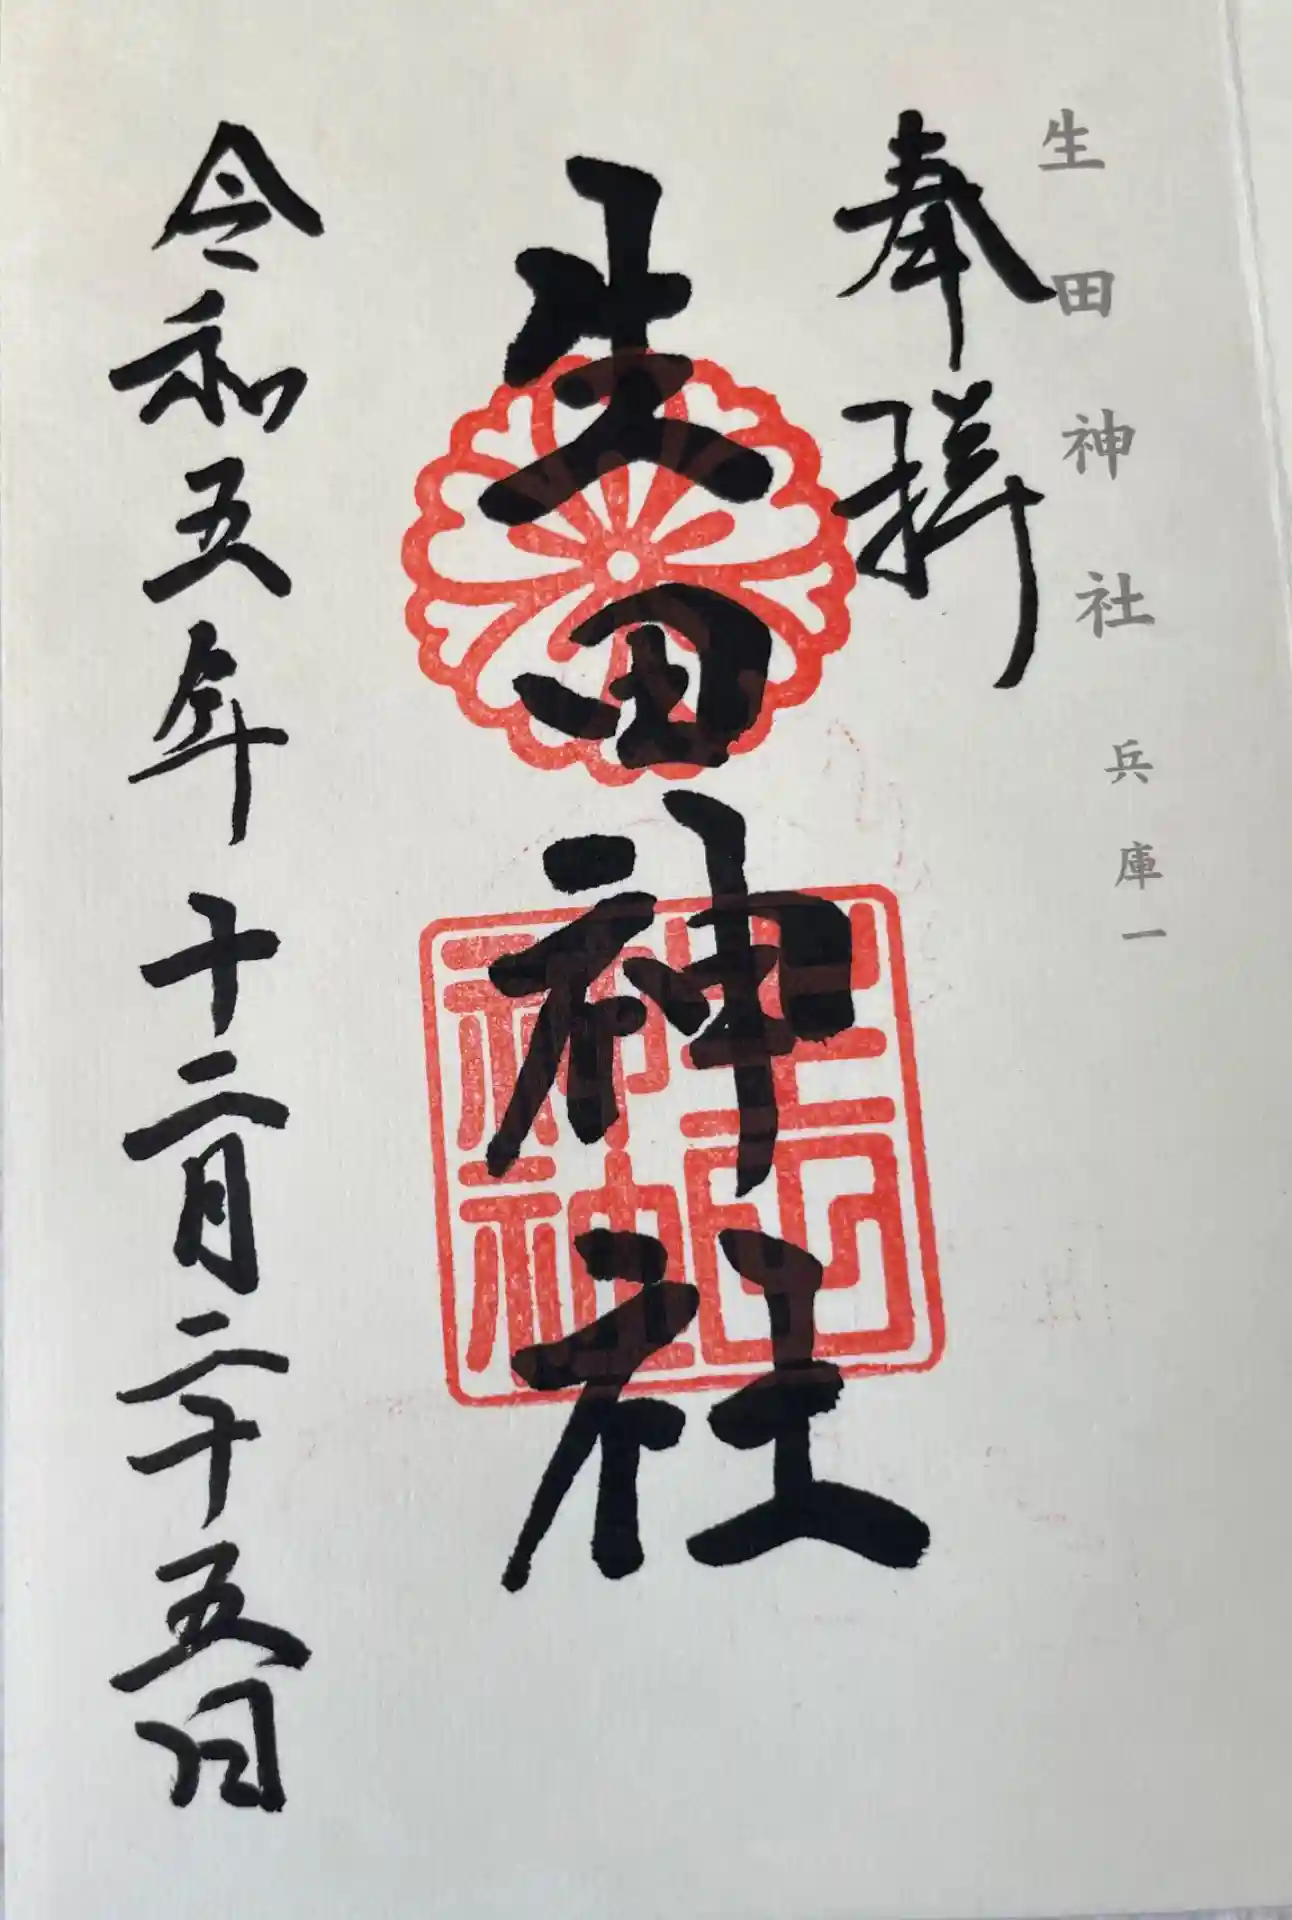 生田神社 兵庫一
奉拝
生田神社
令和五年十二月二十五日
生田神社